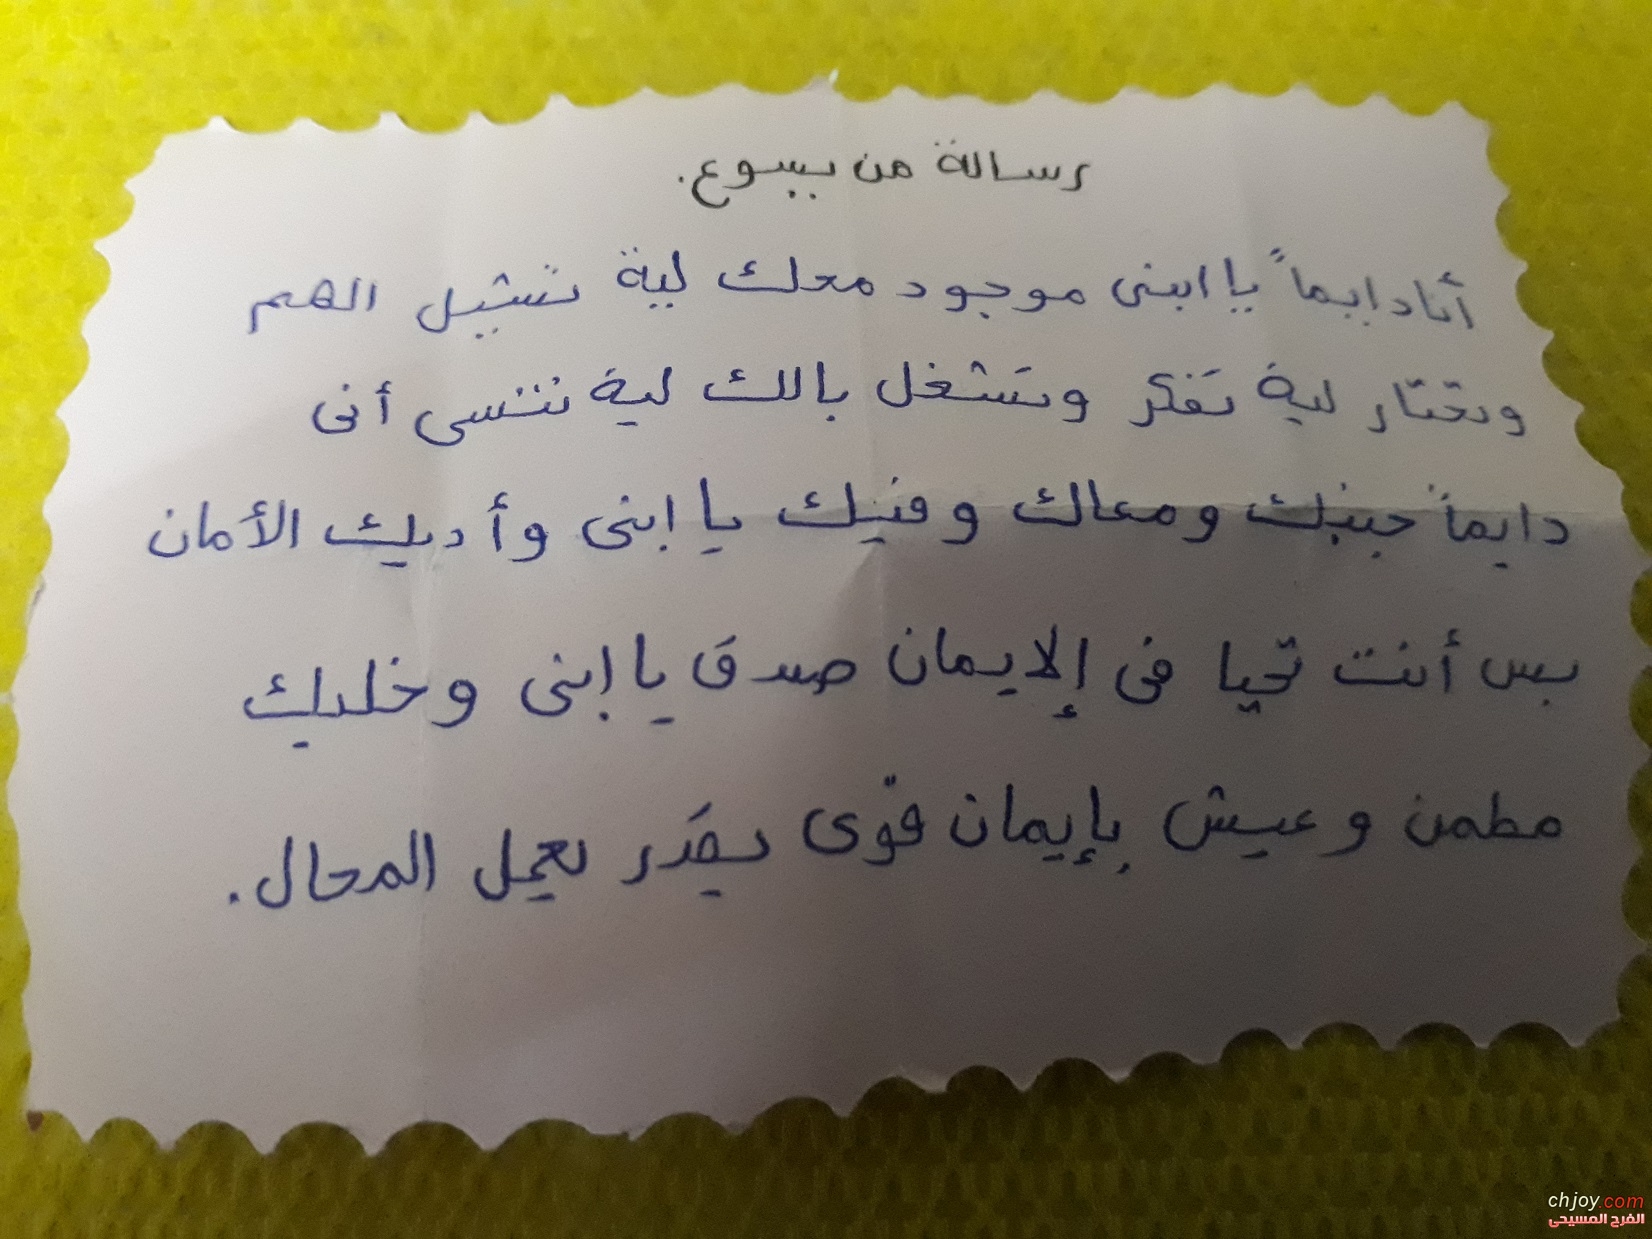 رسالة من يسوع.
أنا دايماً يا ابنى موجود معك لية تشيل الهم
وتحتار لية تفكر وتشغل بالك لية تنسى أنى
دايماً جنبك ومعاك وفيك يا ابنى وأديك الأمان
بس أنت تحيا فى إلايمان صدق يا ابنى وخليك
مطمن وعيش بإيمان قوى يقدر يعمل المحال.
chjoy.com
الفرح المسيحى